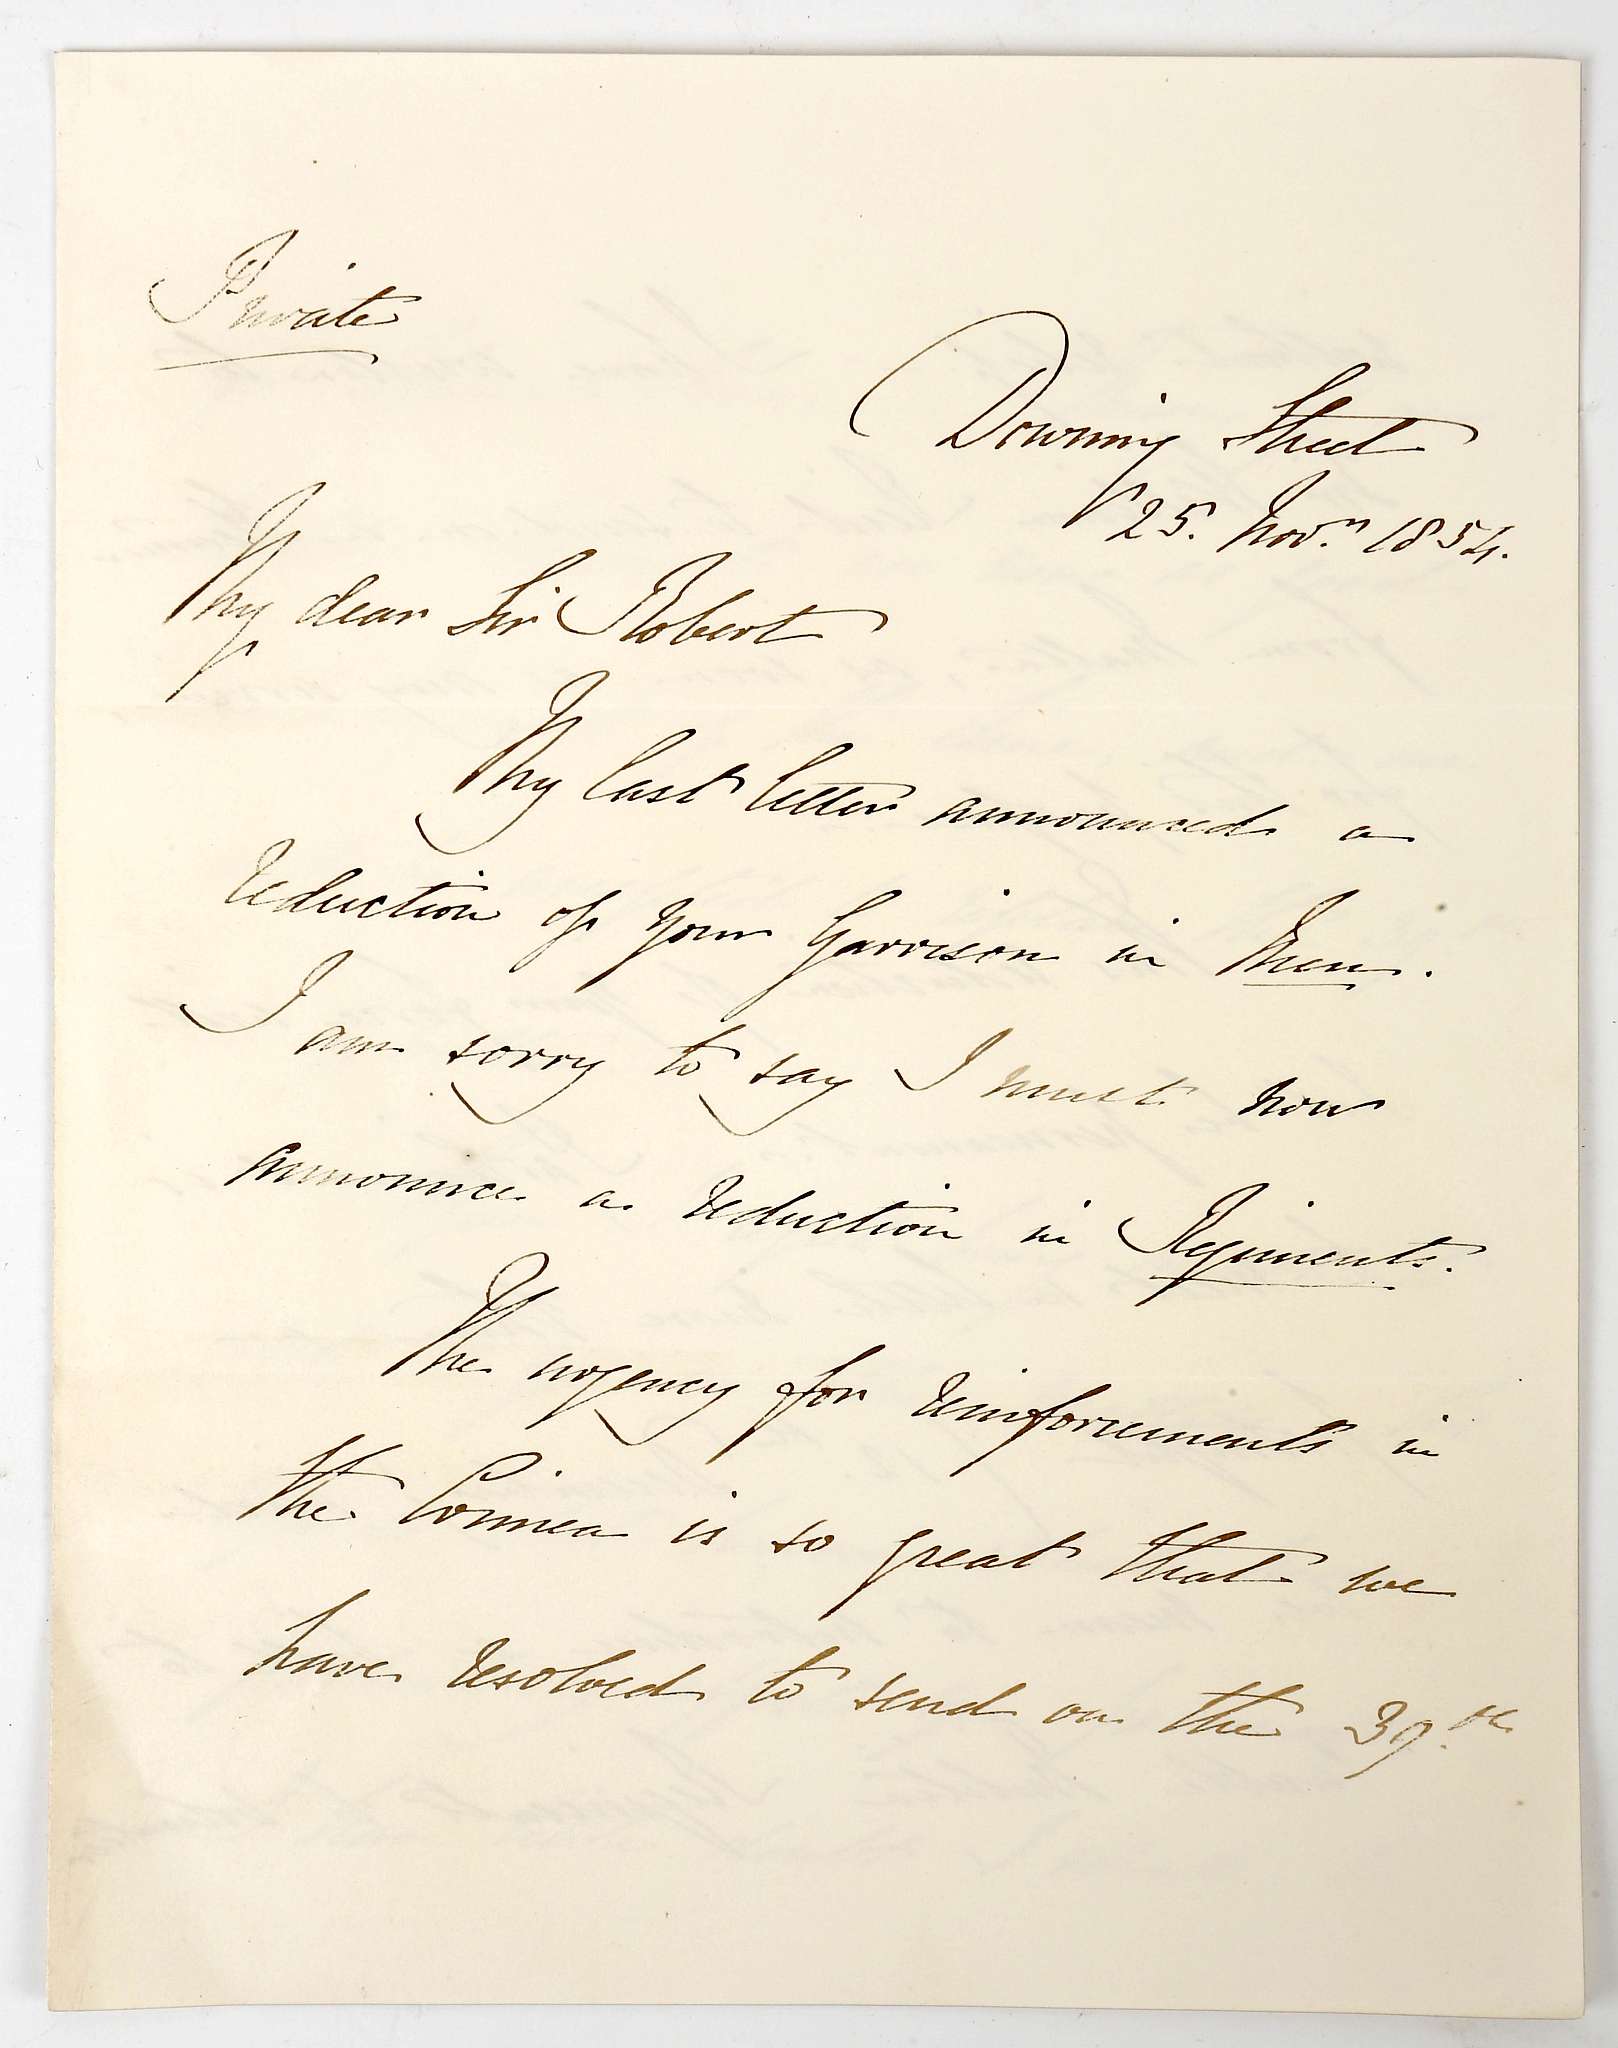 Private
Downing Street
25. Novr. 1854.
My dear Sir Robert
My last letter announced a
reduction of your Garrison in Men.
I am sorry to say I must now
announce a reduction in Regiments.
The urgency for reinforcements in
the Crimea is so great that we
have resolved to send on the 39th